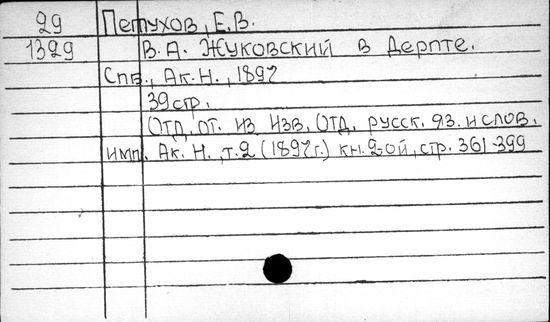 29 Петухов, Е.В.
1329 В. А. Жуковский в Дерпте.
Спв., Ак. Н., 1897
39 стр.
Отд. от. из Изв. Отд. русск. яз. и слов.
имп. Ак. Н., т. 2 (1897 г.) кн. 2-ой, стр. 361-399